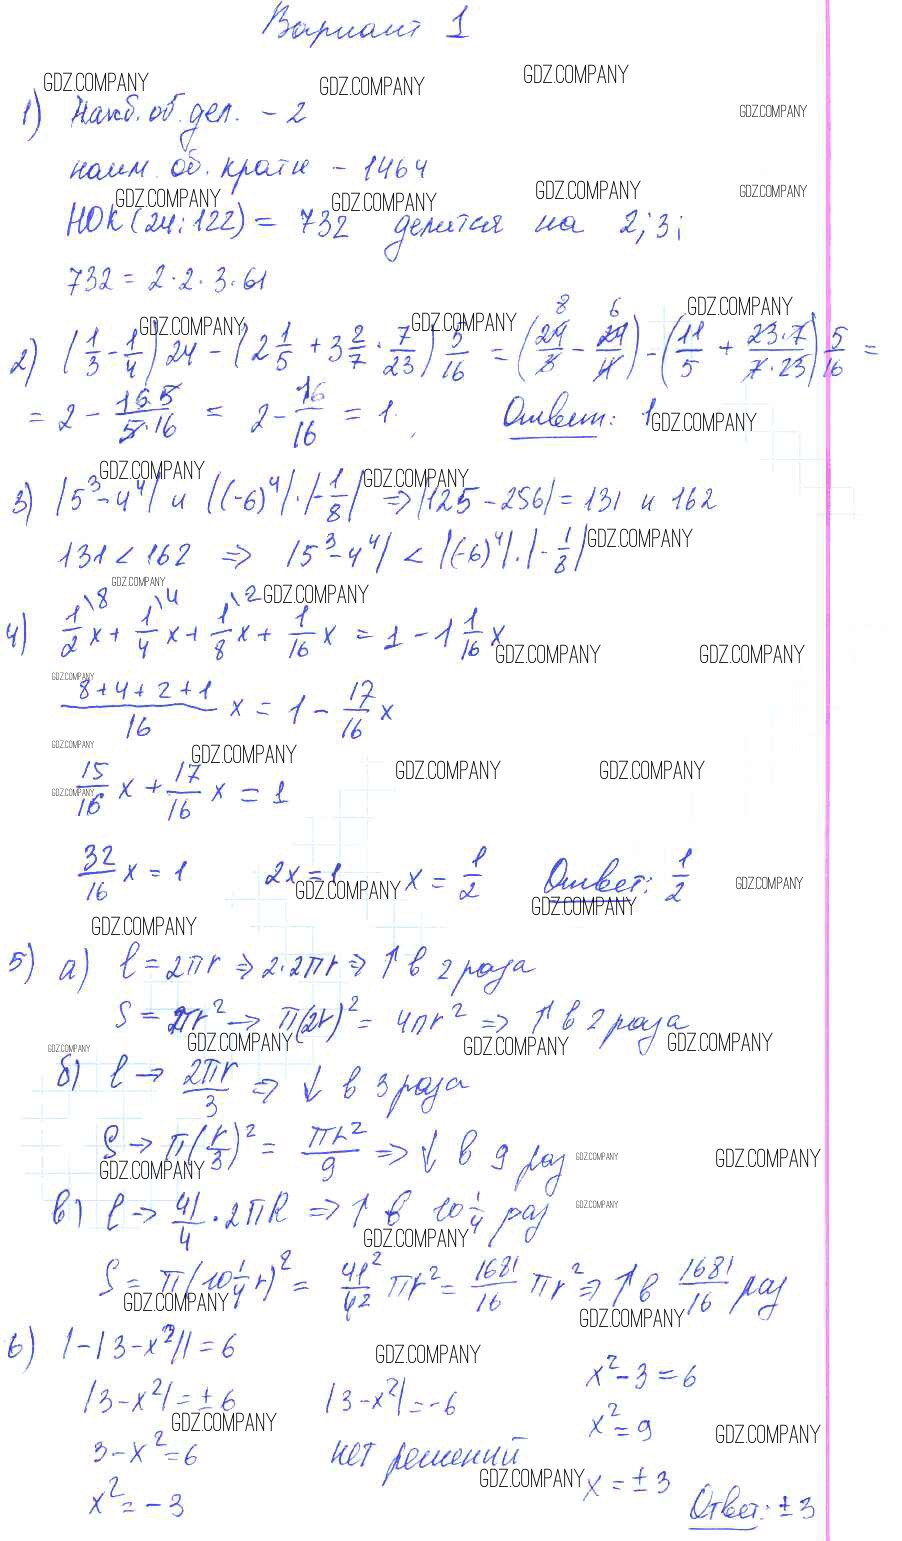 Вариант 1
GDZ.COMPANY GDZ.COMPANY GDZ.COMPANY GDZ.COMPANY
1) Наиб. об. дел. - 2
наим. об. кратн - 1464
GDZ.COMPANY GDZ.COMPANY GDZ.COMPANY GDZ.COMPANY
НОК (24; 122) = 732 делится на 2; 3;
732 = 2·2·3·61
GDZ.COMPANY GDZ.COMPANY GDZ.COMPANY
2) (1/3 - 1/4) 24 - (2 1/5 + 3 2/7 · 7/23) 5/16 = (24/3 - 24/4) - (11/5 + 23·7/7·23) 5/16 =
8 6
= 2 - 16·5/5·16 = 2 - 16/16 = 1. Ответ: 1
GDZ.COMPANY
GDZ.COMPANY GDZ.COMPANY
3) |5³ - 4⁴| и |(-6)⁴|·|-1/8| ⇒ |125 - 256| = 131 и 162
131 < 162 ⇒ |5³ - 4⁴| < |(-6)⁴|·|-1/8|
GDZ.COMPANY
GDZ.COMPANY GDZ.COMPANY
4) 1/2\8 x + 1/4\4 x + 1/8\2 x + 1/16 x = 1 - 1 1/16 x
GDZ.COMPANY GDZ.COMPANY
GDZ.COMPANY
8+4+2+1/16 x = 1 - 17/16 x
GDZ.COMPANY GDZ.COMPANY GDZ.COMPANY GDZ.COMPANY
15/16 x + 17/16 x = 1
GDZ.COMPANY
32/16 x = 1 2x = 1 x = 1/2 Ответ: 1/2
GDZ.COMPANY GDZ.COMPANY GDZ.COMPANY
GDZ.COMPANY
5) а) l = 2πr ⇒ 2·2πr ⇒ ↑ в 2 раза
S = πr² → π(2r)² = 4πr² ⇒ ↑ в 2 раза
GDZ.COMPANY GDZ.COMPANY GDZ.COMPANY GDZ.COMPANY
б) l → 2πr/3 ⇒ ↓ в 3 раза
S → π(r/3)² = πr²/9 ⇒ ↓ в 9 раз
GDZ.COMPANY GDZ.COMPANY GDZ.COMPANY
в) l → 41/4 · 2πR ⇒ ↑ в 10 1/4 раз
GDZ.COMPANY GDZ.COMPANY
S = π(10 1/4 r)² = 41²/42 πr² = 1681/16 πr² ⇒ ↑ в 1681/16 раз
GDZ.COMPANY GDZ.COMPANY
6) |-|3-x²|| = 6
GDZ.COMPANY
|3-x²| = ±6 |3-x²| = -6 x²-3 = 6
GDZ.COMPANY GDZ.COMPANY
3-x² = 6 нет решений x² = 9
GDZ.COMPANY
x² = -3 x = ±3 Ответ: ±3